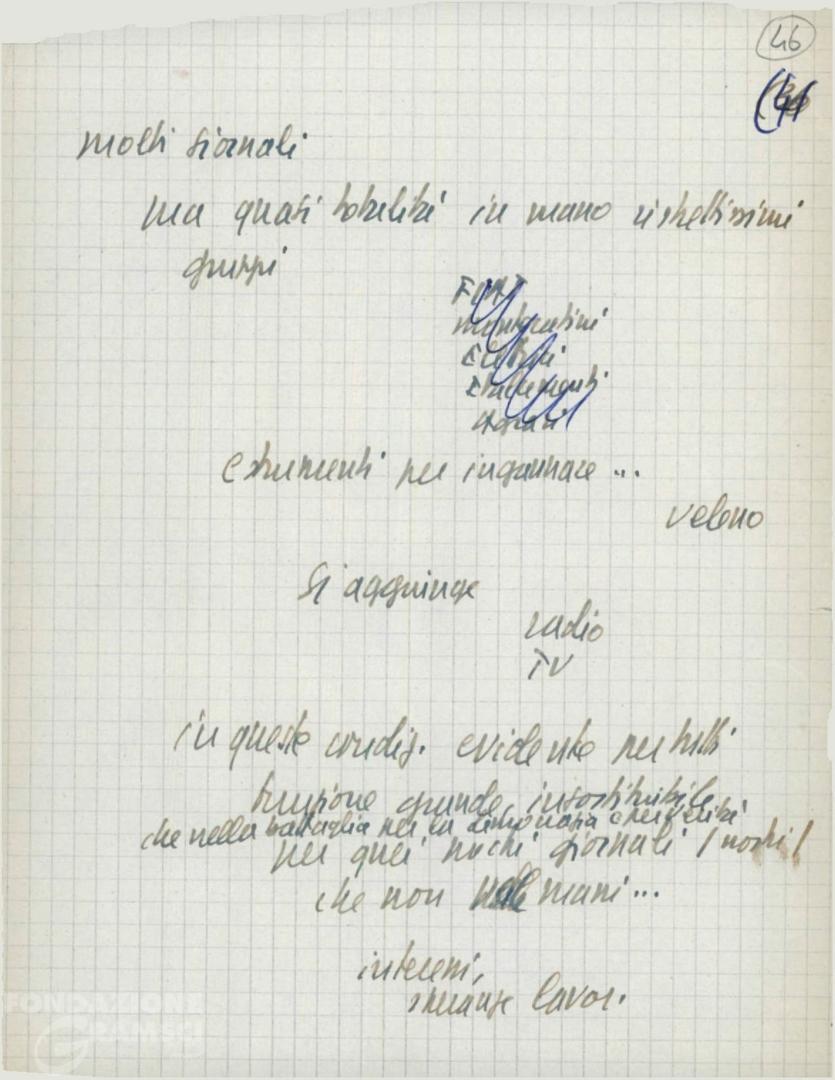 46
molti giornali
ma quasi totalità in mano ristrettissimi
gruppi
FIAT
Montecatini
Elettrici
Zuccherifici
Agrari
e strumenti per ingannare ...
veleno
Si aggiunge
radio
TV
in queste condiz. evidente per tutti
funzione grande, insostituibile
che nella battaglia per la democrazia e per verità
per quei pochi giornali / nostri /
che non mani ...
interessi,
speranze lavor.
FONDAZIONE
GRAMSCI